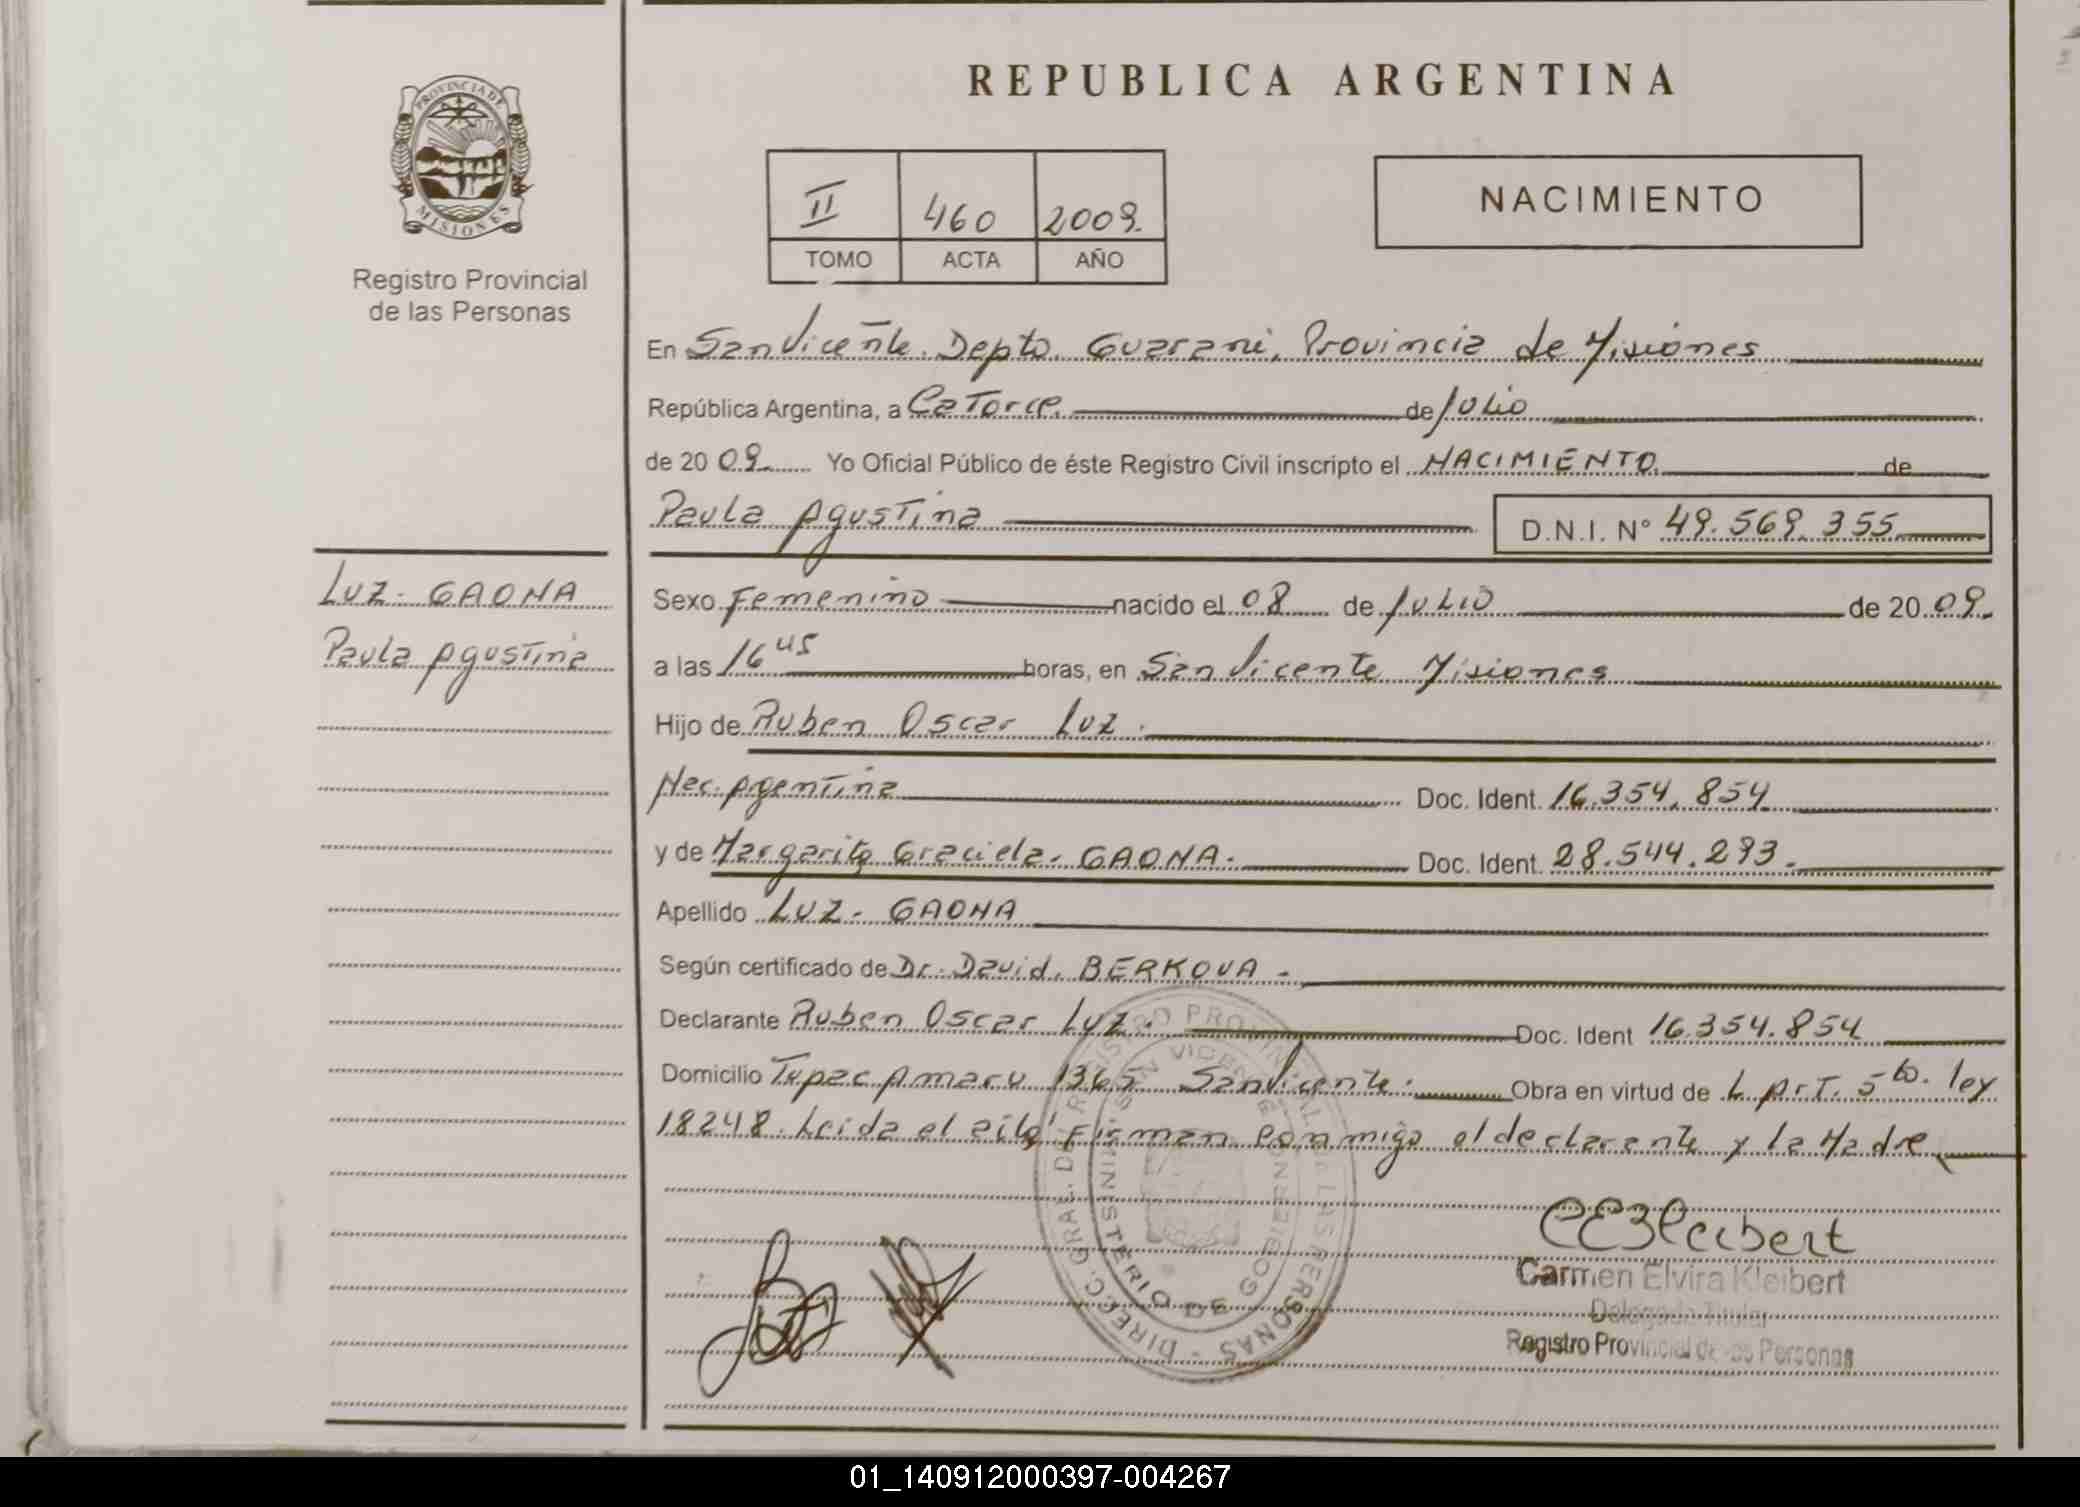 PROVINCIA DE
MISIONES
Registro Provincial
de las Personas
LUZ - GAONA
Paula Agustina
REPUBLICA ARGENTINA
II 460 2009.
TOMO ACTA AÑO
NACIMIENTO
En San Vicente. Depto. Guarani, Provincia de Misiones
República Argentina, a Catorce. de Julio
de 20 09. Yo Oficial Público de éste Registro Civil inscripto el NACIMIENTO de
Paula Agustina D.N.I. N° 49.569.355
Sexo Femenino nacido el 08 de JULIO de 20 09.
a las 16 45 horas, en San Vicente Misiones
Hijo de Ruben Oscar Luz.
Nac. Argentina Doc. Ident. 16.354.854
y de Margarita Graciela. GAONA. Doc. Ident. 28.544.293.
Apellido LUZ - GAONA
Según certificado de Dr. David. BERKOVA -
Declarante Ruben Oscar Luz. Doc. Ident 16.354.854
Domicilio Tupac Amaru 1365 San Vicente. Obra en virtud de L Art. 5to. ley
18248. Leida el Firman Conmigo el declarante y la Madre
DIRECC. GRAL. DEL REGISTRO PROVINCIAL DE LAS PERSONAS -
MINISTERIO DE GOBIERNO
SAN VICENTE
CEKleibert
Carmen Elvira Kleibert
Delegada Titular
Registro Provincial de las Personas
01_140912000397-004267